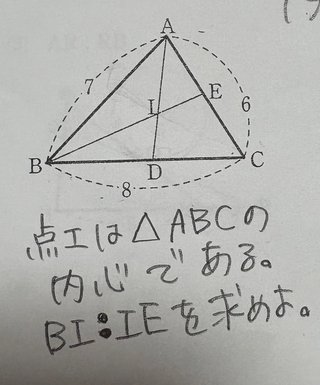 A
7
E
I
6
B
D
C
8
点Iは△ABCの
内心である。
BI:IEを求めよ。